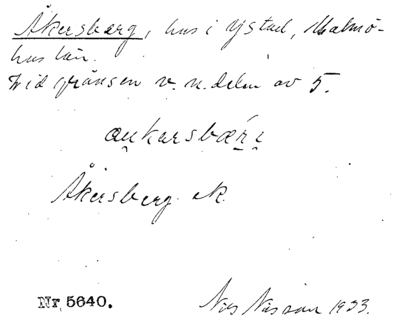 Åkersberg, hus i Ystad, Malmö-
hus län.
Vid gränsen v. n. delen av 5.
aukarsbæri
Åkersberg ek.
Nr 5640.
Nils Nilsson 1933.